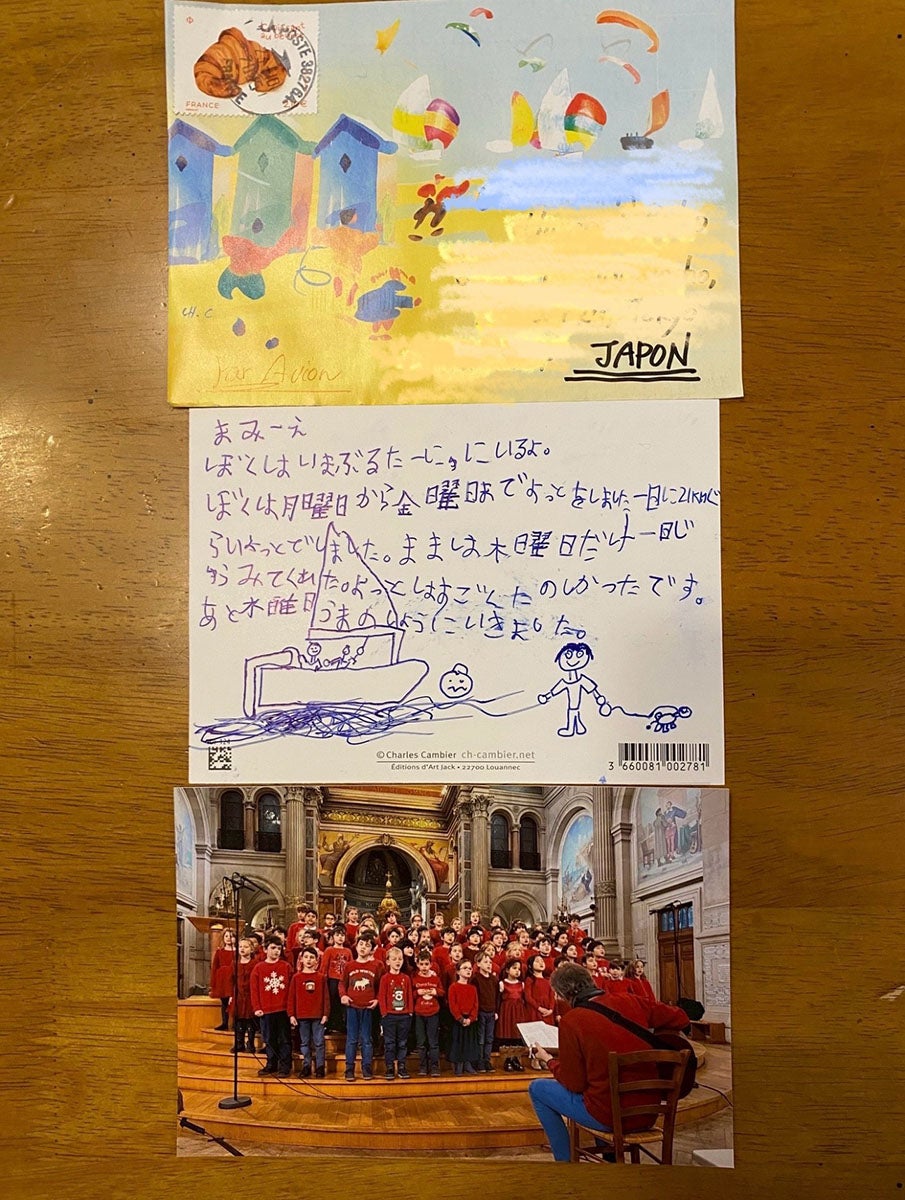 croissant
au beurre
LA POSTE 38276A
FRANCE
FRANCE
CH. C.
Par Avion
JAPON
まみーえ
ぼくはいまぶるたーにゅにいるよ。
ぼくは月曜日から金曜日までよっとをしました一日に21kmぐ
らいよっとでしました。ままは木曜日だけ一日じ
ゅうみてくれた。よっとはすごくたのしかったです。
あと水曜日うまのしょうにいきました。
© Charles Cambier ch-cambier.net
Éditions d'Art Jack • 22700 Louannec
3 660081 002781